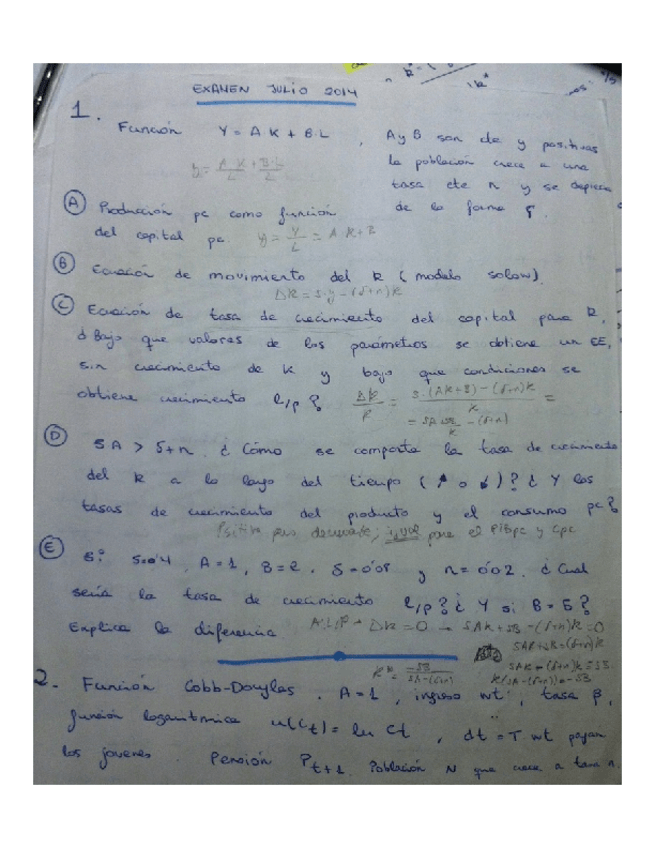 EXAMEN JULIO 2014
1.
Función Y = A K + B L , A y B son cte y positivas
y = A·K/L + B·L/L
la población crece a una
tasa cte n y se deprecia
de la forma δ.
Ⓐ Producción pc como función
del capital pc. y = Y/L = A·k+B
Ⓑ Ecuación de movimiento del k (modelo solow).
Δk = s·y - (δ+n)k
Ⓒ Ecuación de tasa de crecimiento del capital para k,
¿ Bajo que valores de los parámetros se obtiene un EE,
sin crecimiento de k y bajo que condiciones se
obtiene crecimiento l/p ? Δk/k = s·(Ak+B) - (δ+n)k / k =
= sA+sB/k - (δ+n)
Ⓓ sA > δ+n. ¿ Cómo se comporta la tasa de crecimiento
del k a lo largo del tiempo (↑ o ↓)? ¿ Y las
tasas de crecimiento del producto y el consumo pc?
Positiva pero decreciente; igual para el PIBpc y Cpc
Ⓔ Si s=0'4, A=1, B=2, δ=0'08 y n=0'02. ¿ Cual
sería la tasa de crecimiento l/p? ¿ Y si B=5?
Explica la diferencia
Δk=0 → sAk+sB-(δ+n)k=0
sAk+sB=(δ+n)k
k* = -sB/sA-(δ+n)
sAk-(δ+n)k=-sB
k(sA-(δ+n))=-sB
2. Función Cobb-Douglas. A=1, ingreso wt, tasa β,
función logaritmica u(Ct) = ln Ct , dt = T wt pagan
los jovenes. Pensión Pt+1. Población N que crece a tasa n.